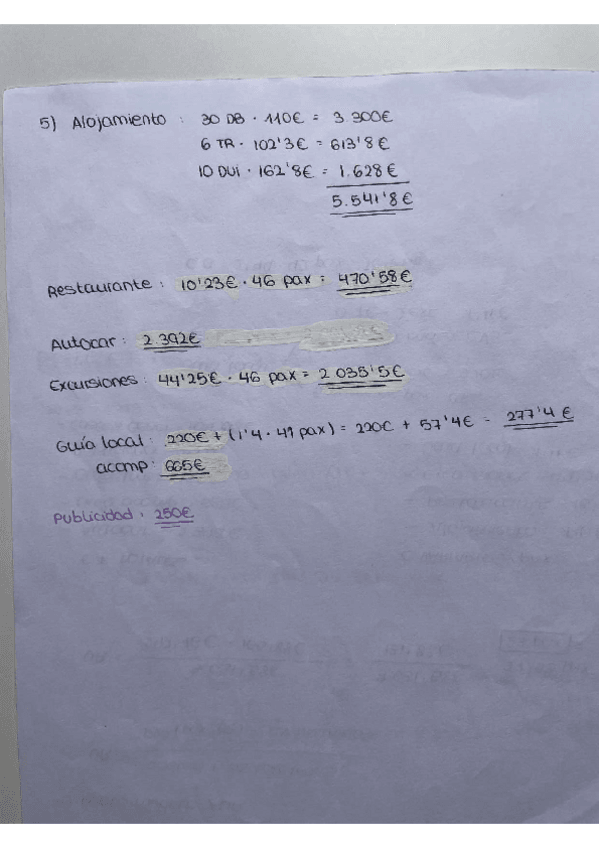 5) Alojamiento : 30 DB · 110€ = 3.300€
6 TR · 102'3€ = 613'8€
10 DUI · 162'8€ = 1.628€
5.541'8€
Restaurante : 10'23€ · 46 pax = 470'58€
Autocar : 2.392€
Excursiones : 44'25€ · 46 pax = 2.035'5€
Guía local : 220€ + (1'4 · 41 pax) = 220€ + 57'4€ = 277'4€
acomp : 665€
Publicidad : 250€